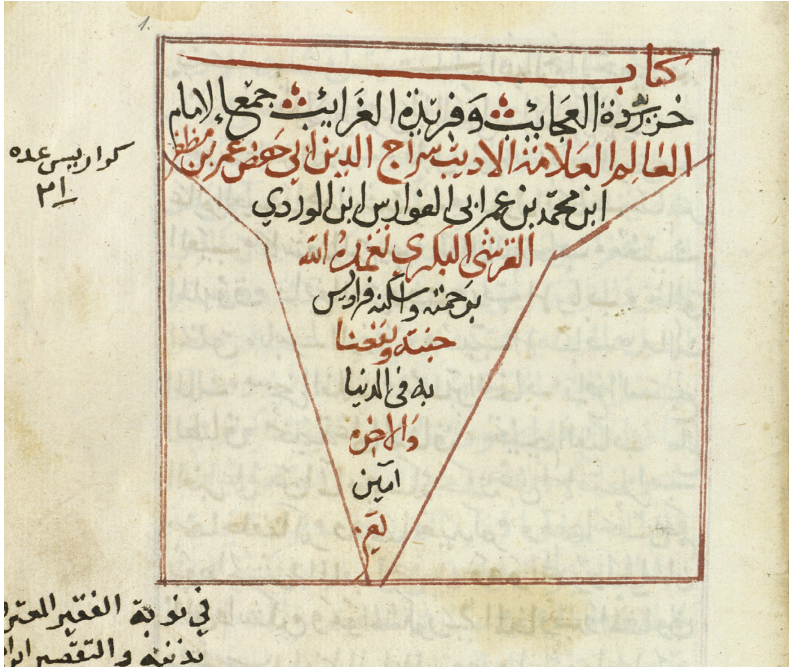 كتاب
خريدة العجائب وفريدة الغرائب جمع الامام
العالم العلامة الاديب سراج الدين ابي حفص عمر بن مظفر
ابن محمد بن عمر ابي الفوارس ابن الوردي
القرشي البكري تغمده الله
برحمته واسكنه فراديس
جنته ونفعنا
به في الدنيا
والاخره
امين
كواريس عده
٢١
في نوبة الفقير المعترف
بذنبه والتقصير